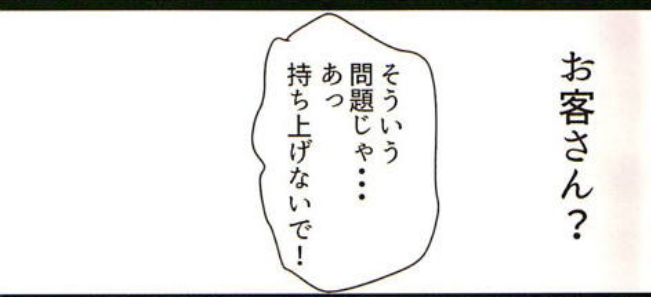 お客さん？
そういう
問題じゃ・・・
あっ
持ち上げないで！